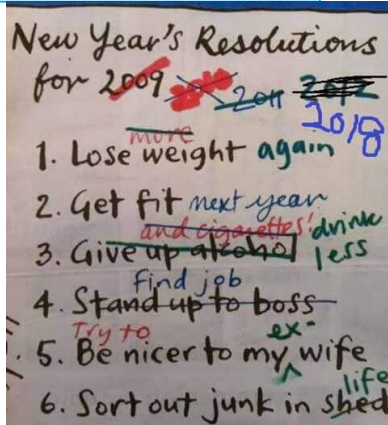 New Year's Resolutions
for 2009 2010 2011 2012
2018
more
1. Lose weight again
2. Get fit next year
and cigarettes! drink
3. Give up alcohol less
find job
4. Stand up to boss
Try to ex-
5. Be nicer to my wife
life
6. Sort out junk in shed